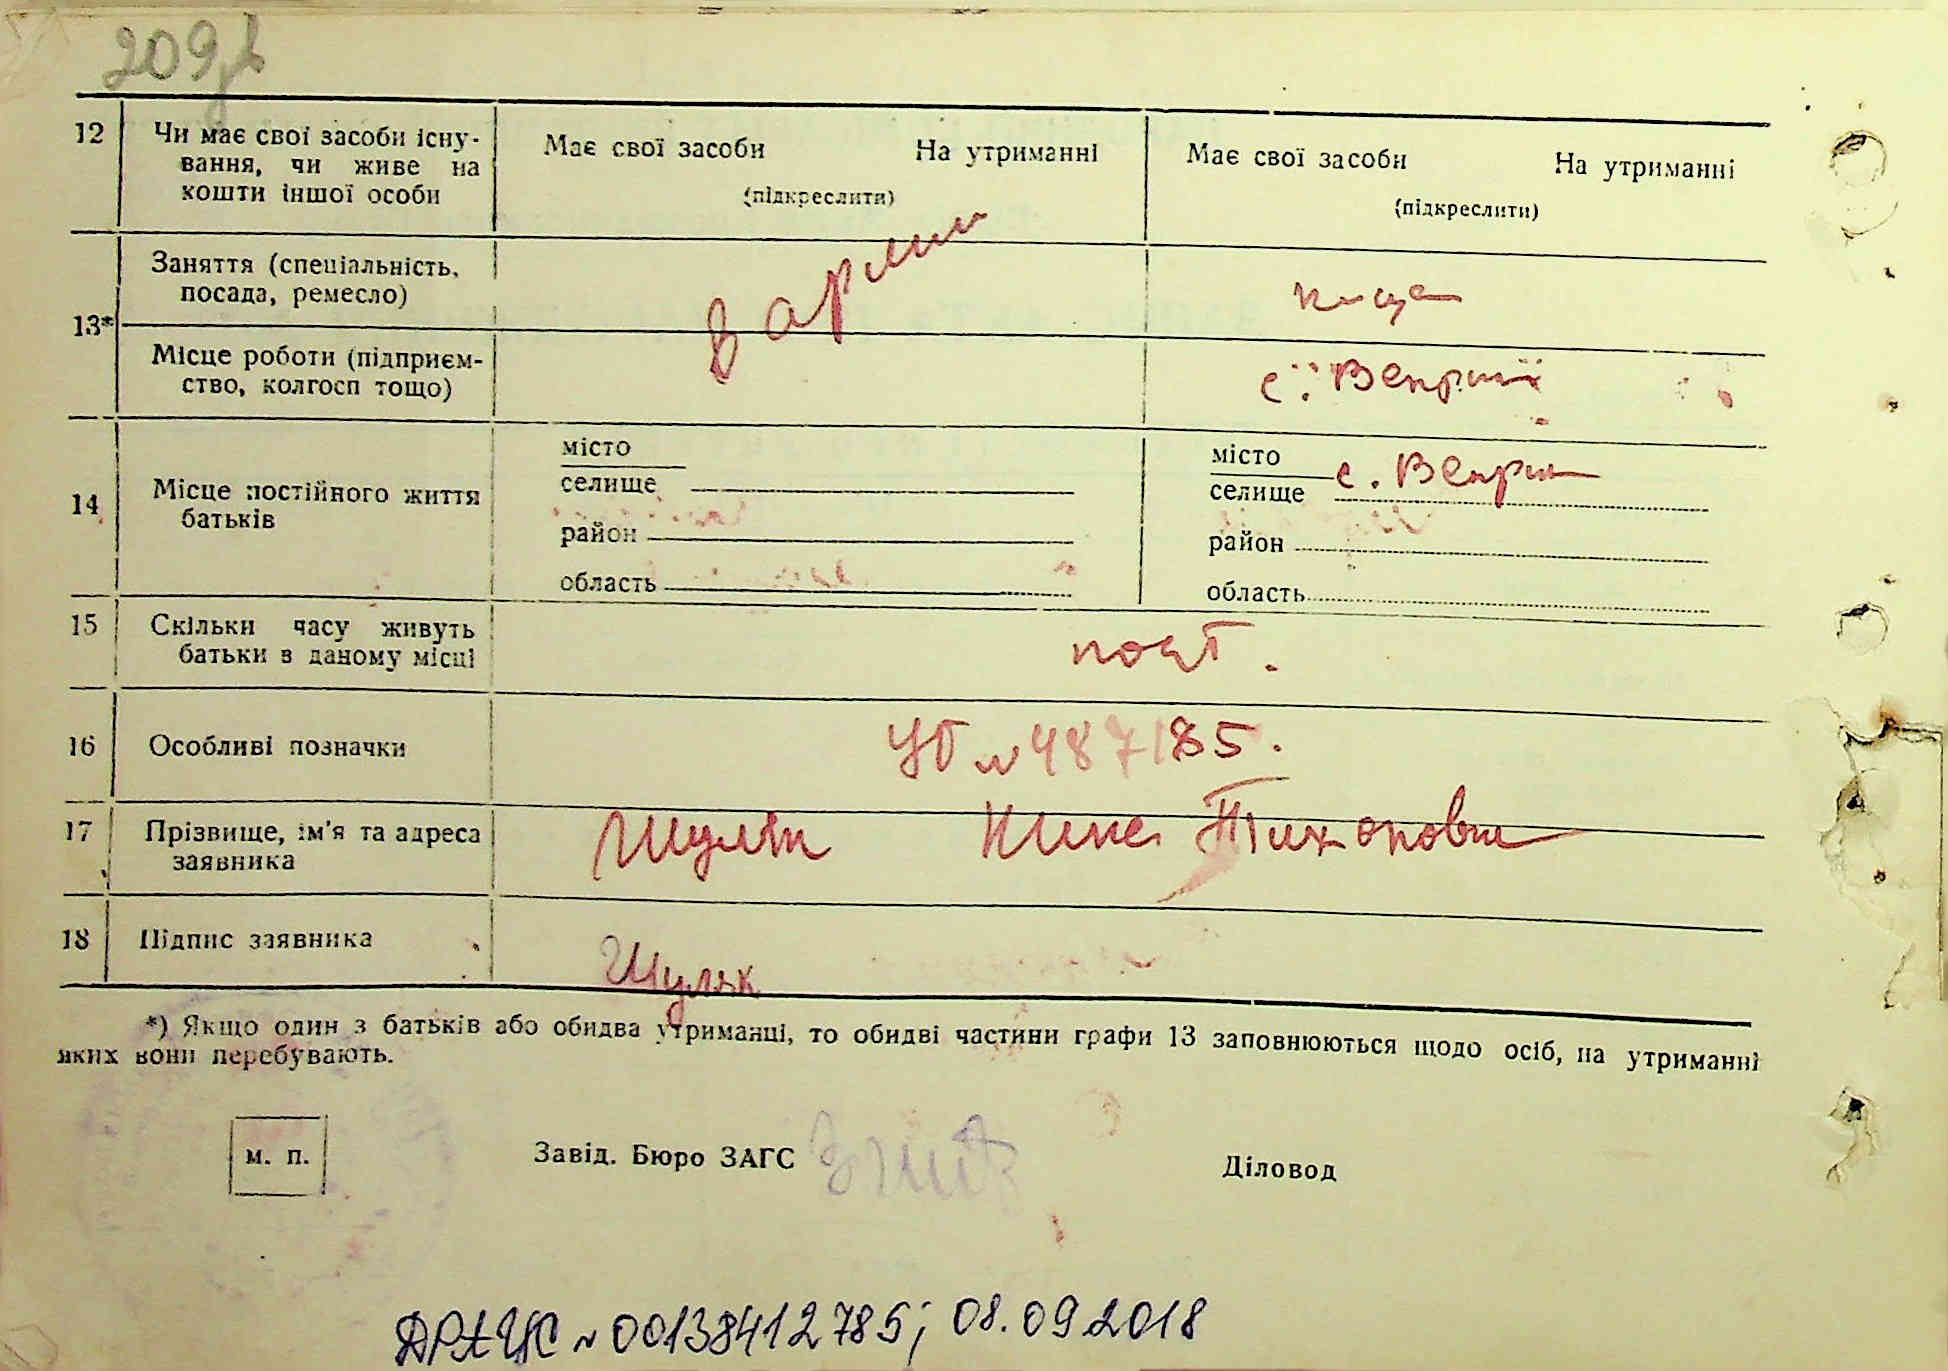 209
12 Чи має свої засоби існу- Має свої засоби На утриманні Має свої засоби На утриманні
вання, чи живе на
кошти іншої особи (підкреслити) (підкреслити)
Заняття (спеціальність, в армии
посада, ремесло)
13*
Місце роботи (підприєм- с. Веприк
ство, колгосп тощо)
14 Місце постійного життя батьків
місто місто
селище селище с. Веприк
район район
область область
15 Скільки часу живуть пост.
батьки в даному місці
16 Особливі позначки УБ № 487185.
17 Прізвище, ім'я та адреса Шуляк Нина Тихоновна
заявника
18 Підпис заявника Шуляк
*) Якщо один з батьків або обидва утриманці, то обидві частини графи 13 заповнюються щодо осіб, на утриманні
яких вони перебувають.
м. п. Завід. Бюро ЗАГС Діловод
ДРАЦС № 00138412785; 08.09.2018